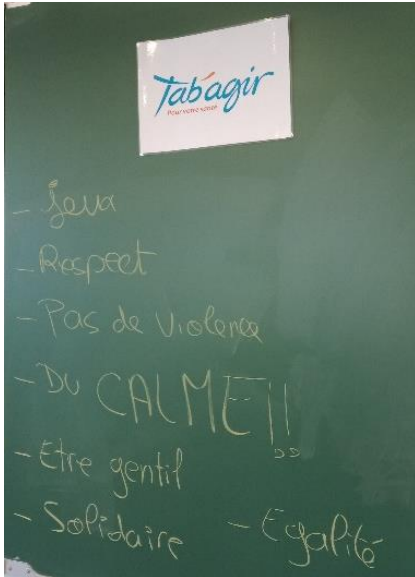 Tab'agir
Pour votre santé
- Jeux
- Respect
- Pas de violence
- Du CALME!!
- Etre gentil
- Solidaire - Egalité